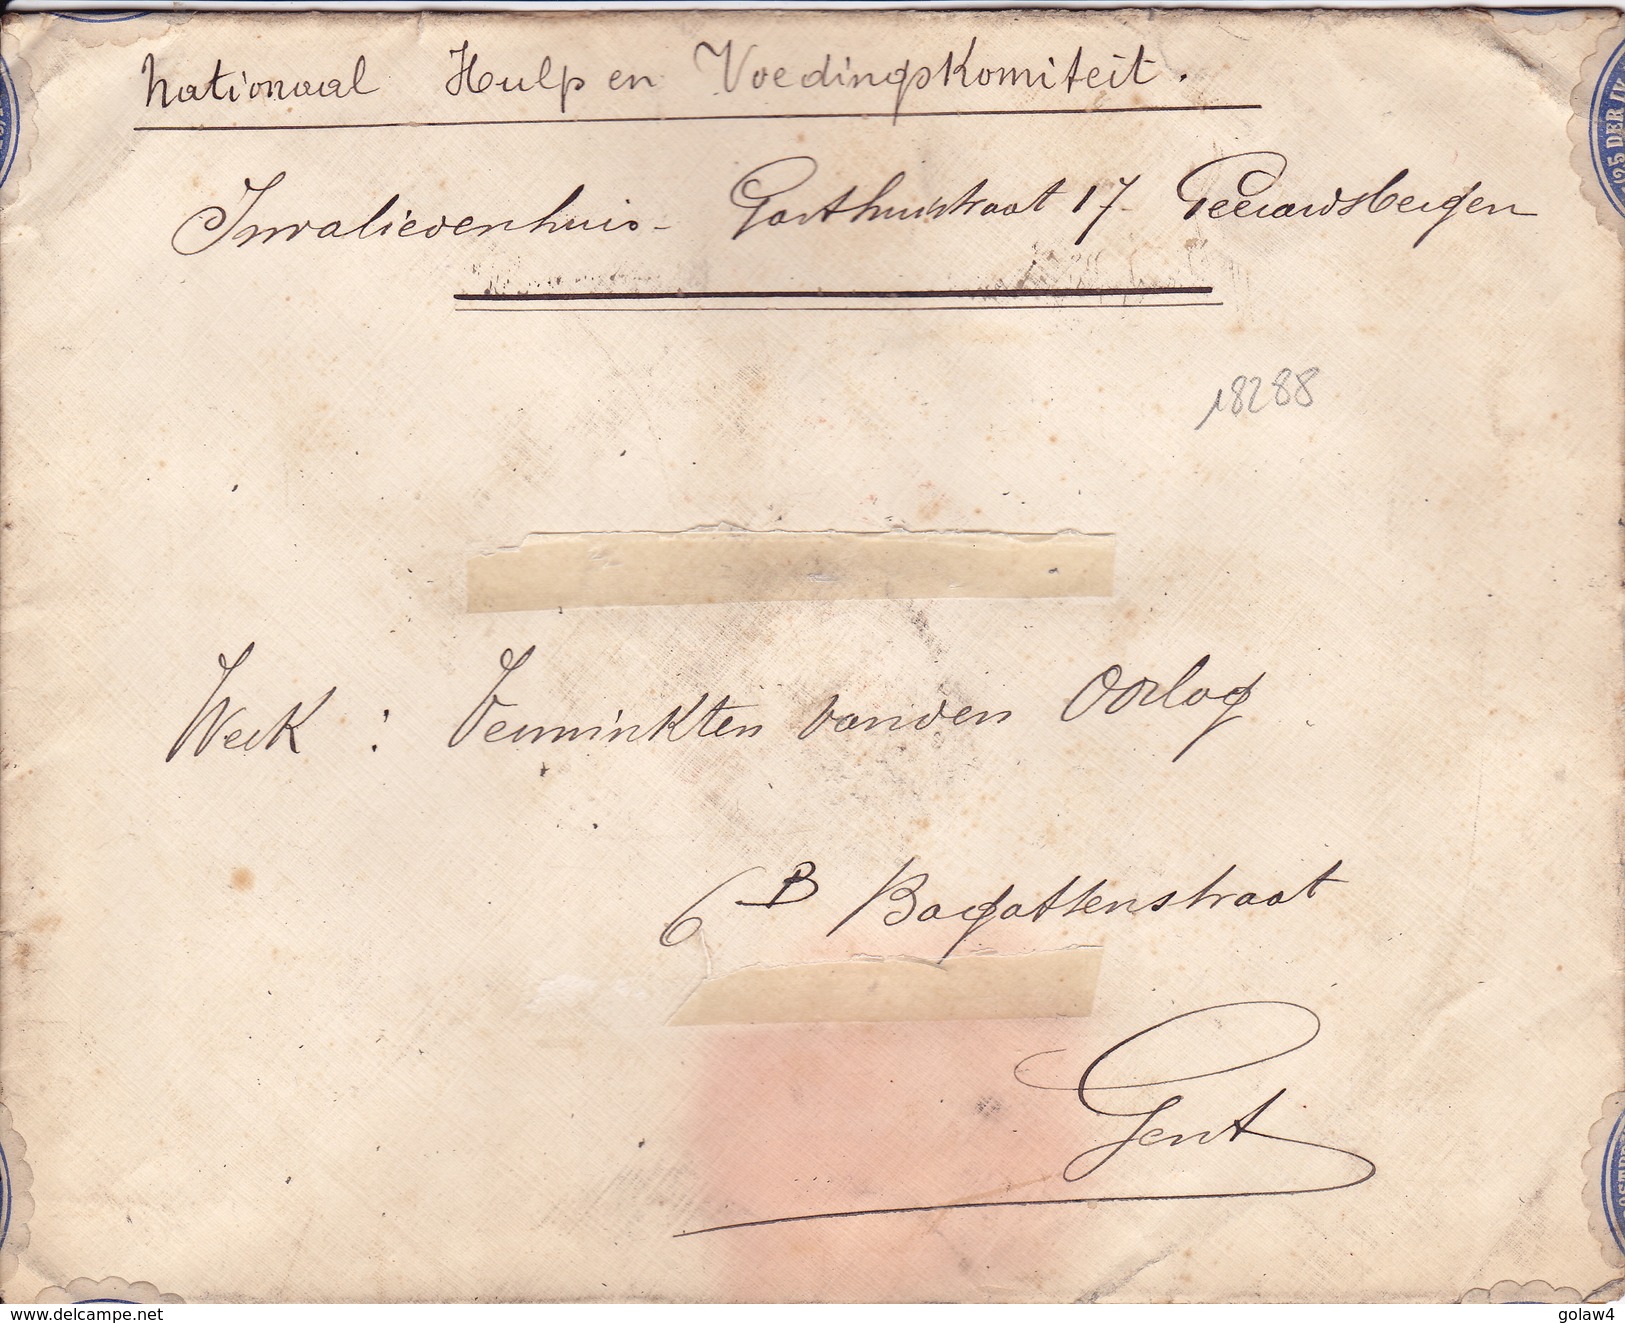 Nationaal Hulp en Voedingskomiteit.
Invalievenhuis - Gasthuisstraat 17 Geeraardsbergen
18288
Werk : Verminkten van den Oorlog
6 B Bagattenstraat
Gent
25 DER IV
delcampe.net
golaw4